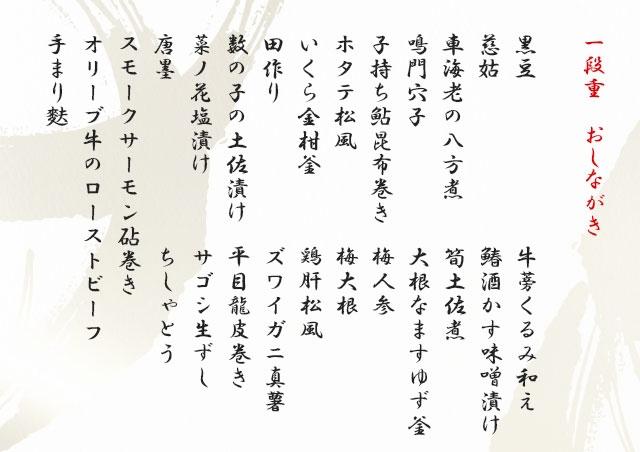 一段重 おしながき
黒豆
慈姑
車海老の八方煮
鳴門穴子
子持ち鮎昆布巻き
ホタテ松風
いくら金柑釜
田作り
数の子の土佐漬け
菜ノ花塩漬け
唐墨
スモークサーモン砧巻き
オリーブ牛のローストビーフ
手まり麩
牛蒡くるみ和え
鰆酒かす味噌漬け
筍土佐煮
大根なますゆず釜
梅人参
梅大根
鶏肝松風
ズワイガニ真薯
平目龍皮巻き
サゴシ生ずし
ちしゃとう